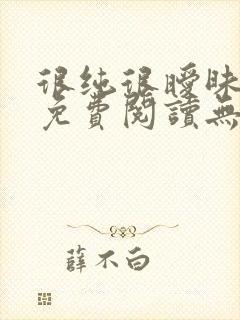 很纯很曖昧
免費閱讀無
薛不白